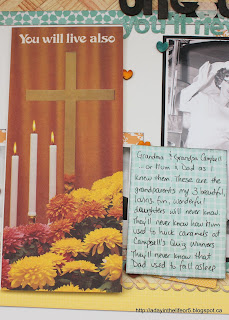 you'll ne
You will live also
Grandma & Grandpa Campbell
- or Mum & Dad as I
knew them. These are the
grandparents my 3 beautiful,
loving, fun, wonderful
daughters will never know.
They'll never know how Mum
used to huck caramels at
Campbell's Quiz winners
They'll never know that
Dad used to fall asleep